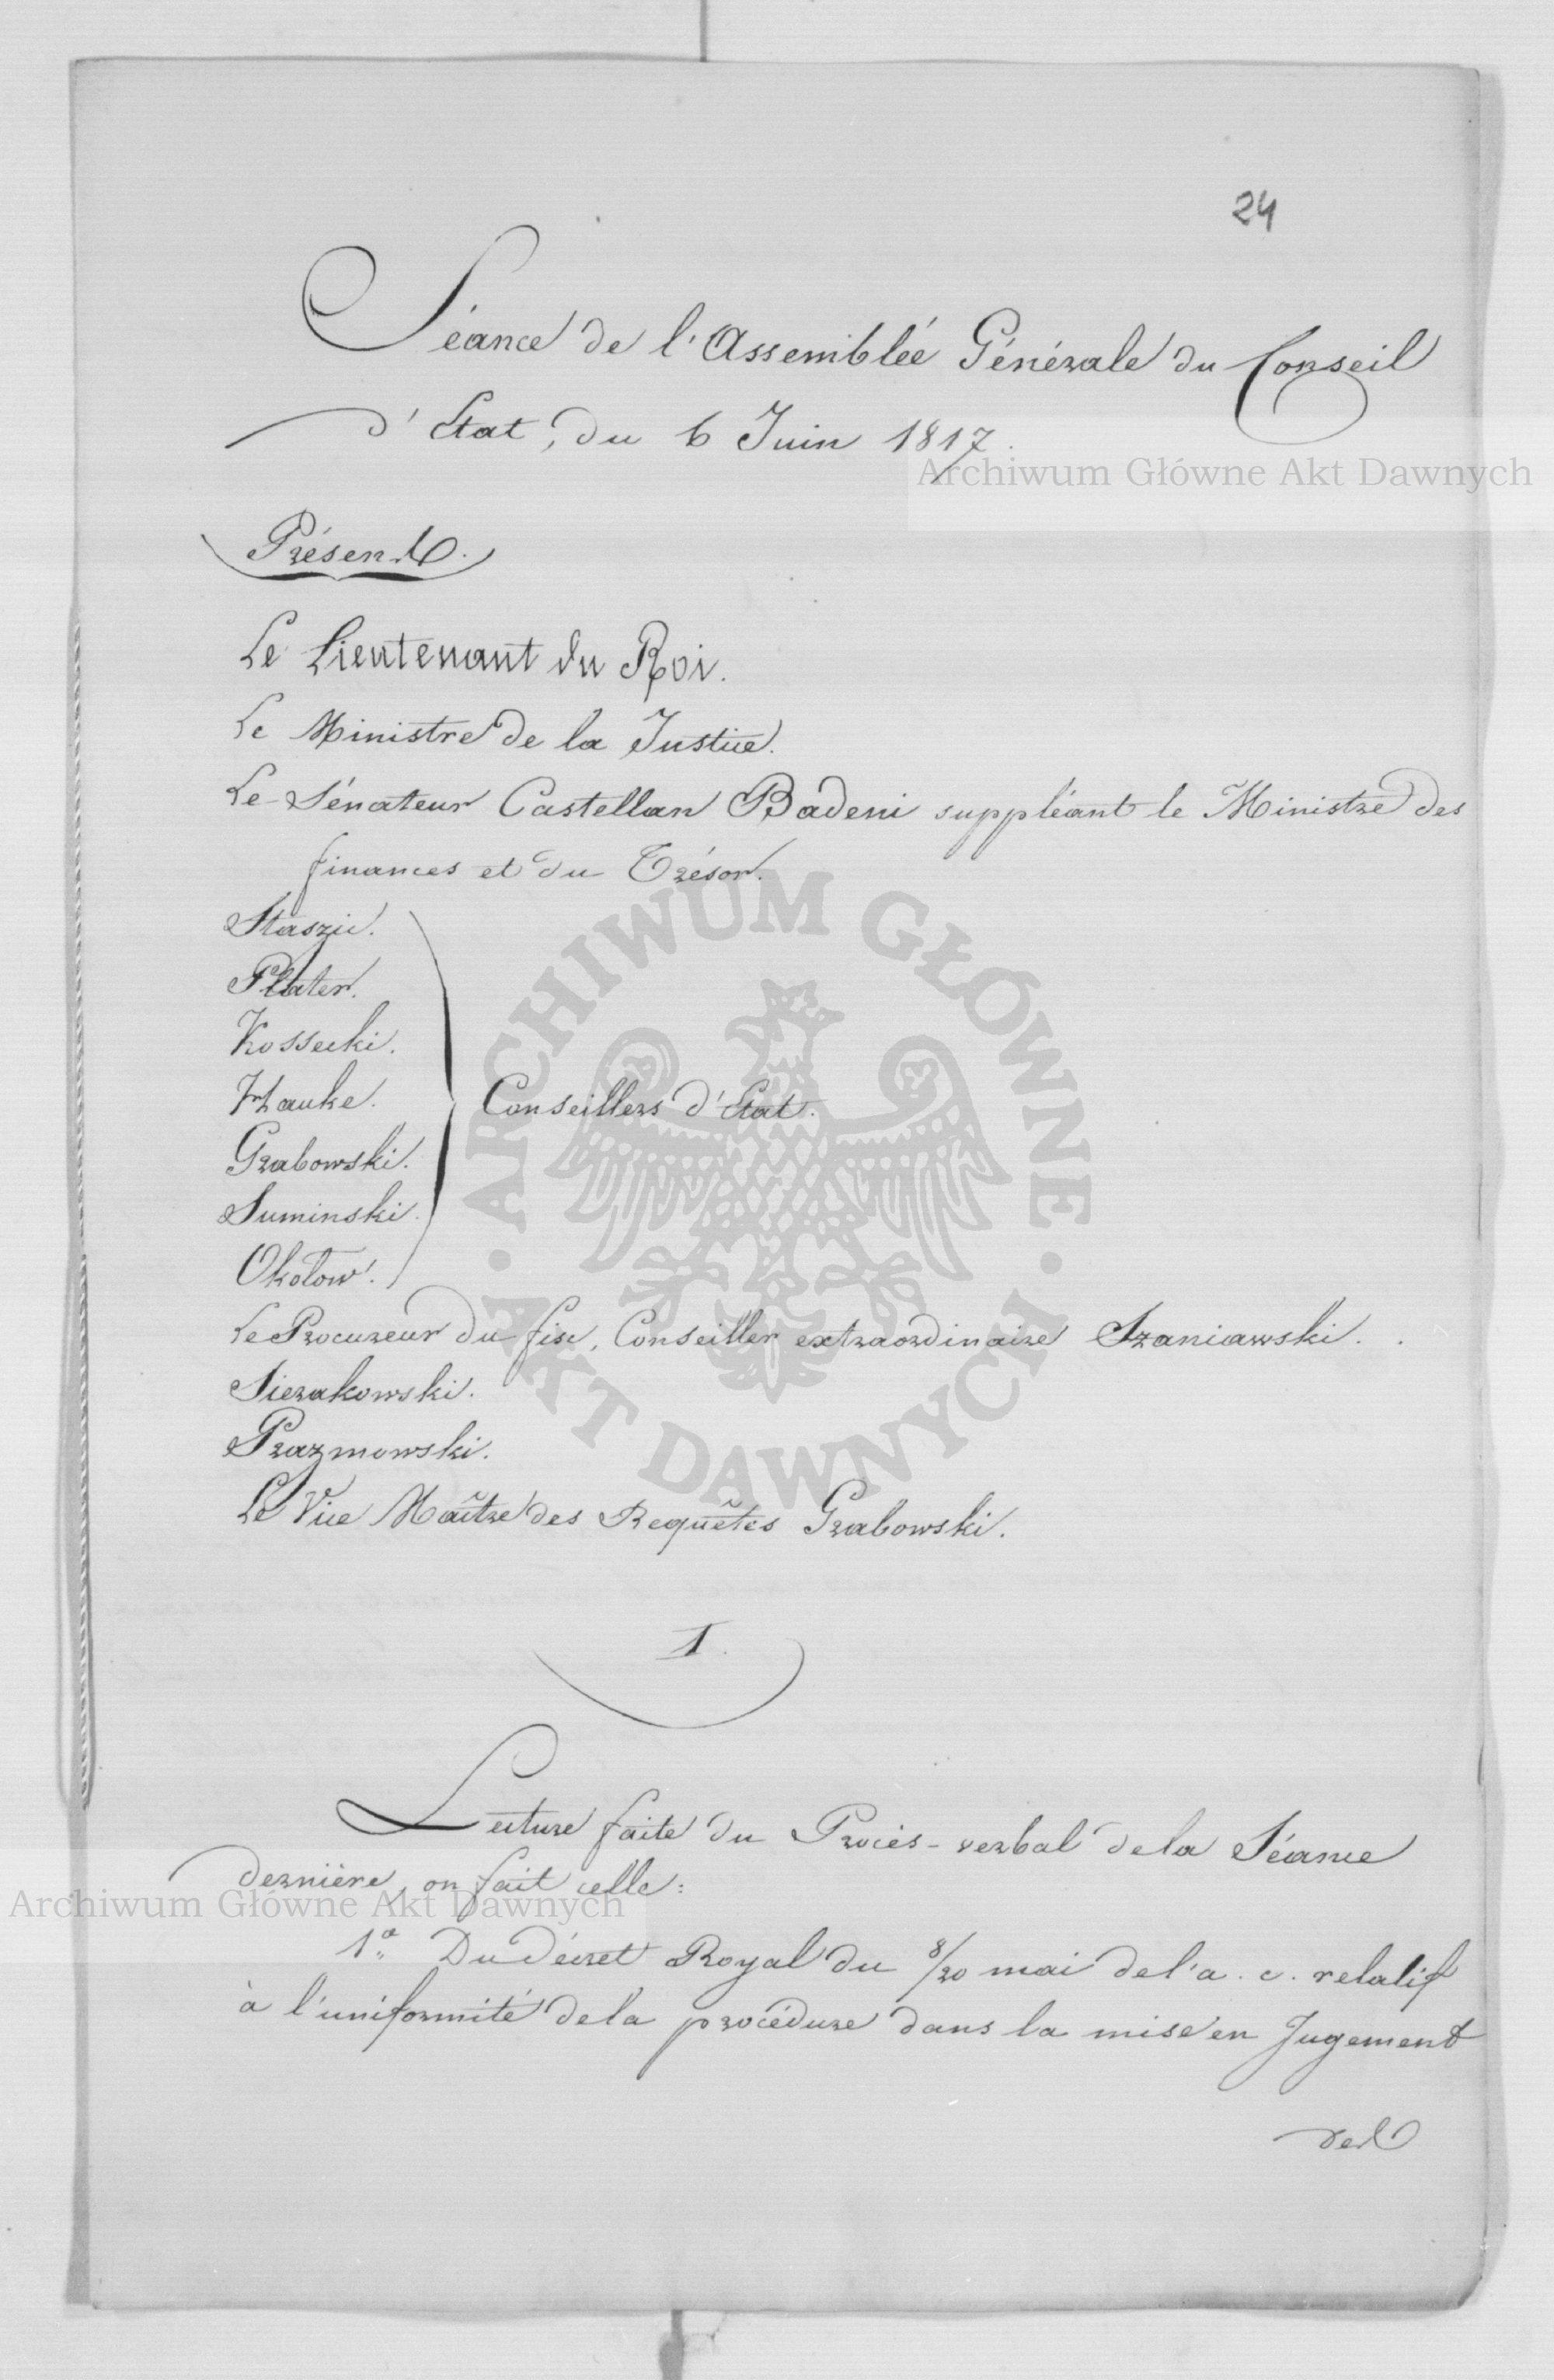 24
Séance de l'Assemblée Générale du Conseil
d'Etat, du 6 Juin 1817.
Archiwum Główne Akt Dawnych
Présents.
Le Lieutenant du Roi.
Le Ministre de la Justice.
Le Sénateur Castellan Badeni suppléant le Ministre des
finances et du Trésor.
Staszic.
Plater.
Kossecki.
Hauke.
Conseillers d'Etat.
Grabowski.
Suminski.
Okołow.
Le Procureur du fisc, Conseiller extraordinaire Szaniawski.
Sierakowski.
Prazmowski.
Le Vice Maître des Requêtes Grabowski.
ARCHIWUM GŁÓWNE • AKT DAWNYCH •
I.
Lecture faite du Procès-verbal de la Séance
dernière, on fait celle:
Archiwum Główne Akt Dawnych
1° Du décret Royal du 8/20 mai de l'a. c. relatif
à l'uniformité de la procédure dans la mise en Jugement
des